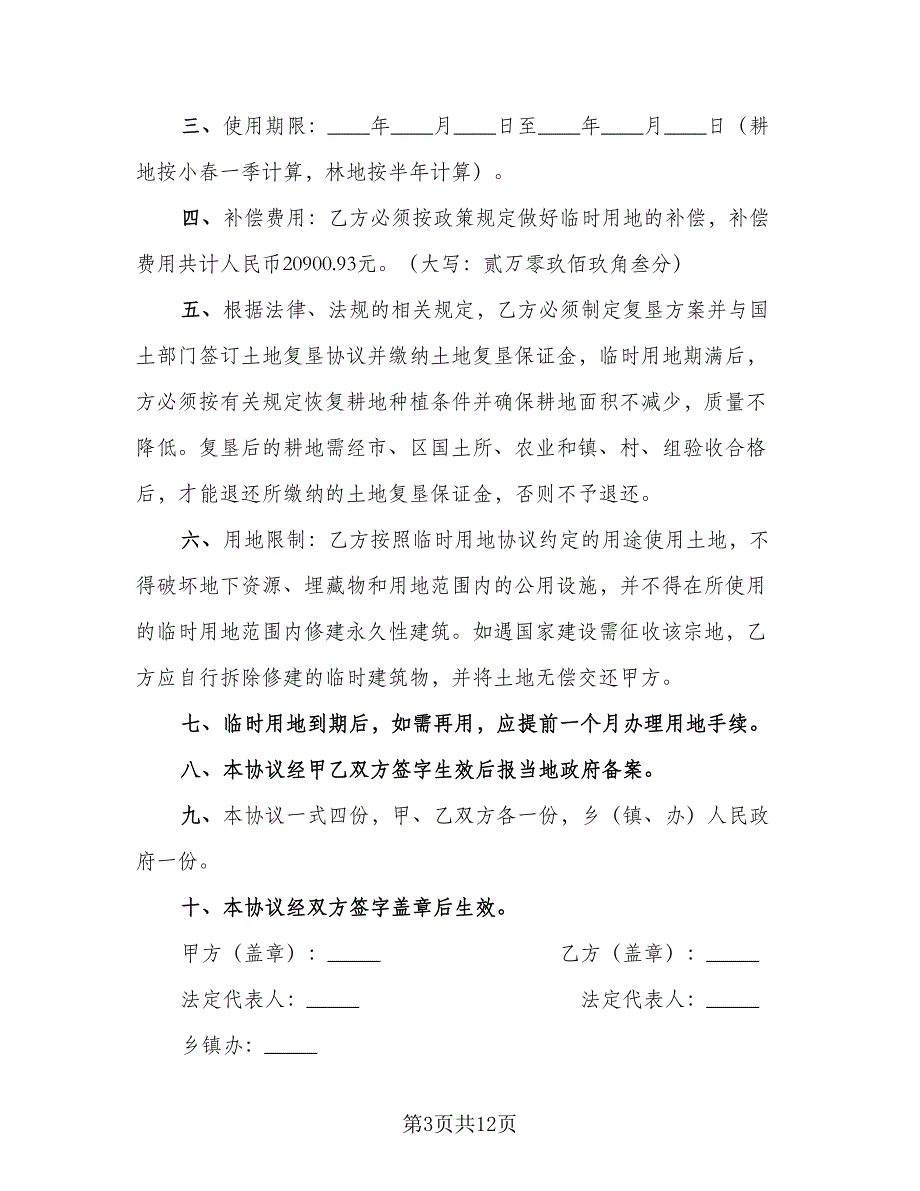 三、使用期限：____年____月____日至____年____月____日（耕
地按小春一季计算，林地按半年计算）。
四、补偿费用：乙方必须按政策规定做好临时用地的补偿，补偿
费用共计人民币20900.93元。（大写：贰万零玖佰玖角叁分）
五、根据法律、法规的相关规定，乙方必须制定复垦方案并与国
土部门签订土地复垦协议并缴纳土地复垦保证金，临时用地期满后，
方必须按有关规定恢复耕地种植条件并确保耕地面积不减少，质量不
降低。复垦后的耕地需经市、区国土所、农业和镇、村、组验收合格
后，才能退还所缴纳的土地复垦保证金，否则不予退还。
六、用地限制：乙方按照临时用地协议约定的用途使用土地，不
得破坏地下资源、埋藏物和用地范围内的公用设施，并不得在所使用
的临时用地范围内修建永久性建筑。如遇国家建设需征收该宗地，乙
方应自行拆除修建的临时建筑物，并将土地无偿交还甲方。
七、临时用地到期后，如需再用，应提前一个月办理用地手续。
八、本协议经甲乙双方签字生效后报当地政府备案。
九、本协议一式四份，甲、乙双方各一份，乡（镇、办）人民政
府一份。
十、本协议经双方签字盖章后生效。
甲方（盖章）：_____ 乙方（盖章）：_____
法定代表人：_____ 法定代表人：_____
乡镇办：_____
第3页共12页